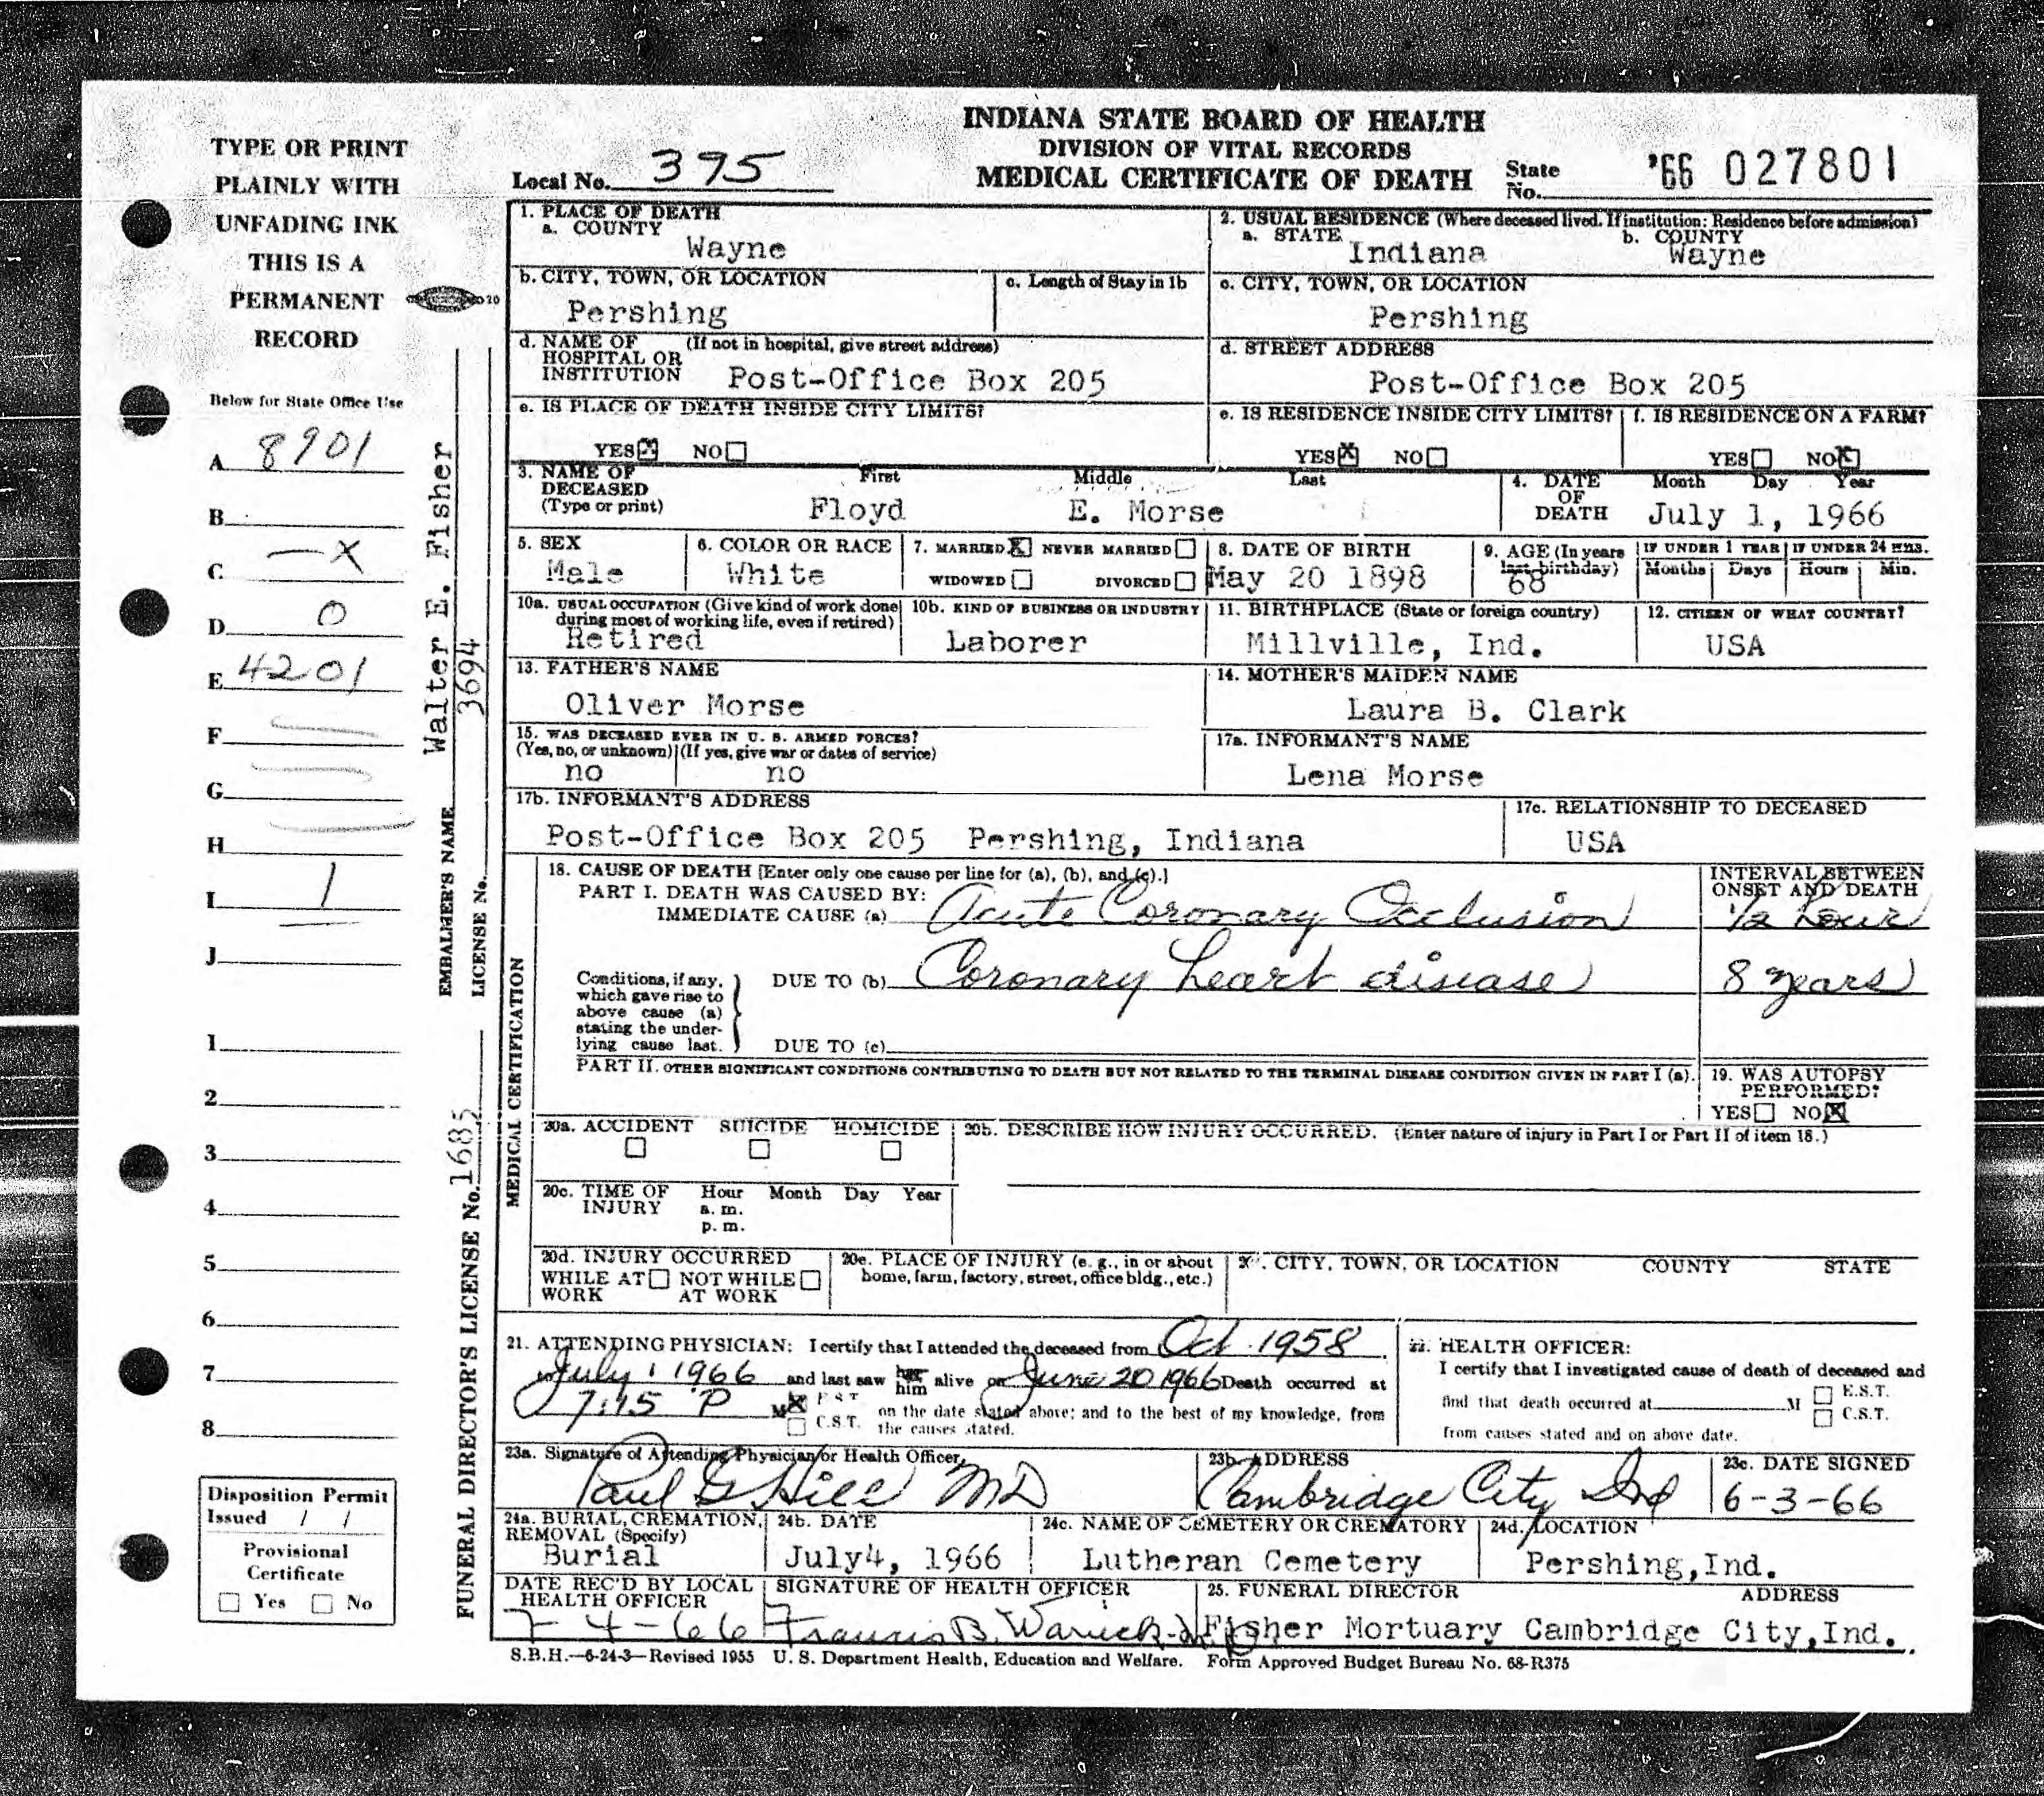 INDIANA STATE BOARD OF HEALTH
DIVISION OF VITAL RECORDS
MEDICAL CERTIFICATE OF DEATH
Local No. 395
State No. '66 027801
TYPE OR PRINT
PLAINLY WITH
UNFADING INK
THIS IS A
PERMANENT
RECORD
Below for State Office Use
A 8901
B
C —X
D 0
E 4201
F
G
H
I 1
J
1
2
3
4
5
6
7
8
Disposition Permit
Issued / /
Provisional
Certificate
☐ Yes ☐ No
EMBALMER'S NAME Walter E. Fisher
LICENSE No. 3694
FUNERAL DIRECTOR'S LICENSE No. 1685
1. PLACE OF DEATH
a. COUNTY
Wayne
2. USUAL RESIDENCE (Where deceased lived. If institution: Residence before admission)
a. STATE b. COUNTY
Indiana Wayne
b. CITY, TOWN, OR LOCATION c. Length of Stay in 1b
Pershing
c. CITY, TOWN, OR LOCATION
Pershing
d. NAME OF (If not in hospital, give street address)
HOSPITAL OR
INSTITUTION Post-Office Box 205
d. STREET ADDRESS
Post-Office Box 205
e. IS PLACE OF DEATH INSIDE CITY LIMITS?
YES☒ NO☐
e. IS RESIDENCE INSIDE CITY LIMITS? f. IS RESIDENCE ON A FARM?
YES☒ NO☐ YES☐ NO☒
3. NAME OF First Middle Last
DECEASED
(Type or print) Floyd E. Morse
4. DATE Month Day Year
OF
DEATH July 1, 1966
5. SEX
Male
6. COLOR OR RACE
White
7. MARRIED☒ NEVER MARRIED☐
WIDOWED☐ DIVORCED☐
8. DATE OF BIRTH
May 20 1898
9. AGE (In years
last birthday)
68
IF UNDER 1 YEAR IF UNDER 24 HRS.
Months Days Hours Min.
10a. USUAL OCCUPATION (Give kind of work done
during most of working life, even if retired)
Retired
10b. KIND OF BUSINESS OR INDUSTRY
Laborer
11. BIRTHPLACE (State or foreign country)
Millville, Ind.
12. CITIZEN OF WHAT COUNTRY?
USA
13. FATHER'S NAME
Oliver Morse
14. MOTHER'S MAIDEN NAME
Laura B. Clark
15. WAS DECEASED EVER IN U. S. ARMED FORCES?
(Yes, no, or unknown) (If yes, give war or dates of service)
no no
17a. INFORMANT'S NAME
Lena Morse
17b. INFORMANT'S ADDRESS
Post-Office Box 205 Pershing, Indiana
17c. RELATIONSHIP TO DECEASED
USA
MEDICAL CERTIFICATION
18. CAUSE OF DEATH [Enter only one cause per line for (a), (b), and (c).]
PART I. DEATH WAS CAUSED BY:
IMMEDIATE CAUSE (a) Acute Coronary Occlusion
INTERVAL BETWEEN
ONSET AND DEATH
1/2 hour
Conditions, if any,
which gave rise to
above cause (a)
stating the under-
lying cause last.
DUE TO (b) Coronary heart disease 8 years
DUE TO (c)
PART II. OTHER SIGNIFICANT CONDITIONS CONTRIBUTING TO DEATH BUT NOT RELATED TO THE TERMINAL DISEASE CONDITION GIVEN IN PART I (a).
19. WAS AUTOPSY
PERFORMED?
YES☐ NO☒
20a. ACCIDENT SUICIDE HOMICIDE
☐ ☐ ☐
20b. DESCRIBE HOW INJURY OCCURRED. (Enter nature of injury in Part I or Part II of item 18.)
20c. TIME OF Hour Month Day Year
INJURY a. m.
p. m.
20d. INJURY OCCURRED
WHILE AT☐ NOT WHILE☐
WORK AT WORK
20e. PLACE OF INJURY (e. g., in or about
home, farm, factory, street, office bldg., etc.)
CITY, TOWN, OR LOCATION COUNTY STATE
21. ATTENDING PHYSICIAN: I certify that I attended the deceased from Oct. 1958
July 1 1966 and last saw her him alive on June 20 1966 Death occurred at
7:15 P M ☒ E S T
☐ C.S.T. on the date stated above; and to the best of my knowledge, from
the causes stated.
22. HEALTH OFFICER:
I certify that I investigated cause of death of deceased and
find that death occurred at M ☐ E.S.T.
☐ C.S.T.
from causes stated and on above date.
23a. Signature of Attending Physician or Health Officer
Paul G Hill MD
23b. ADDRESS
Cambridge City Ind
23c. DATE SIGNED
6-3-66
24a. BURIAL, CREMATION,
REMOVAL (Specify)
Burial
24b. DATE
July4, 1966
24c. NAME OF CEMETERY OR CREMATORY
Lutheran Cemetery
24d. LOCATION
Pershing,Ind.
DATE REC'D BY LOCAL
HEALTH OFFICER
7-4-66
SIGNATURE OF HEALTH OFFICER
Francis B. Warrick
25. FUNERAL DIRECTOR ADDRESS
Fisher Mortuary Cambridge City,Ind.
S.B.H.—6-24-3—Revised 1955 U. S. Department Health, Education and Welfare. Form Approved Budget Bureau No. 68-R375